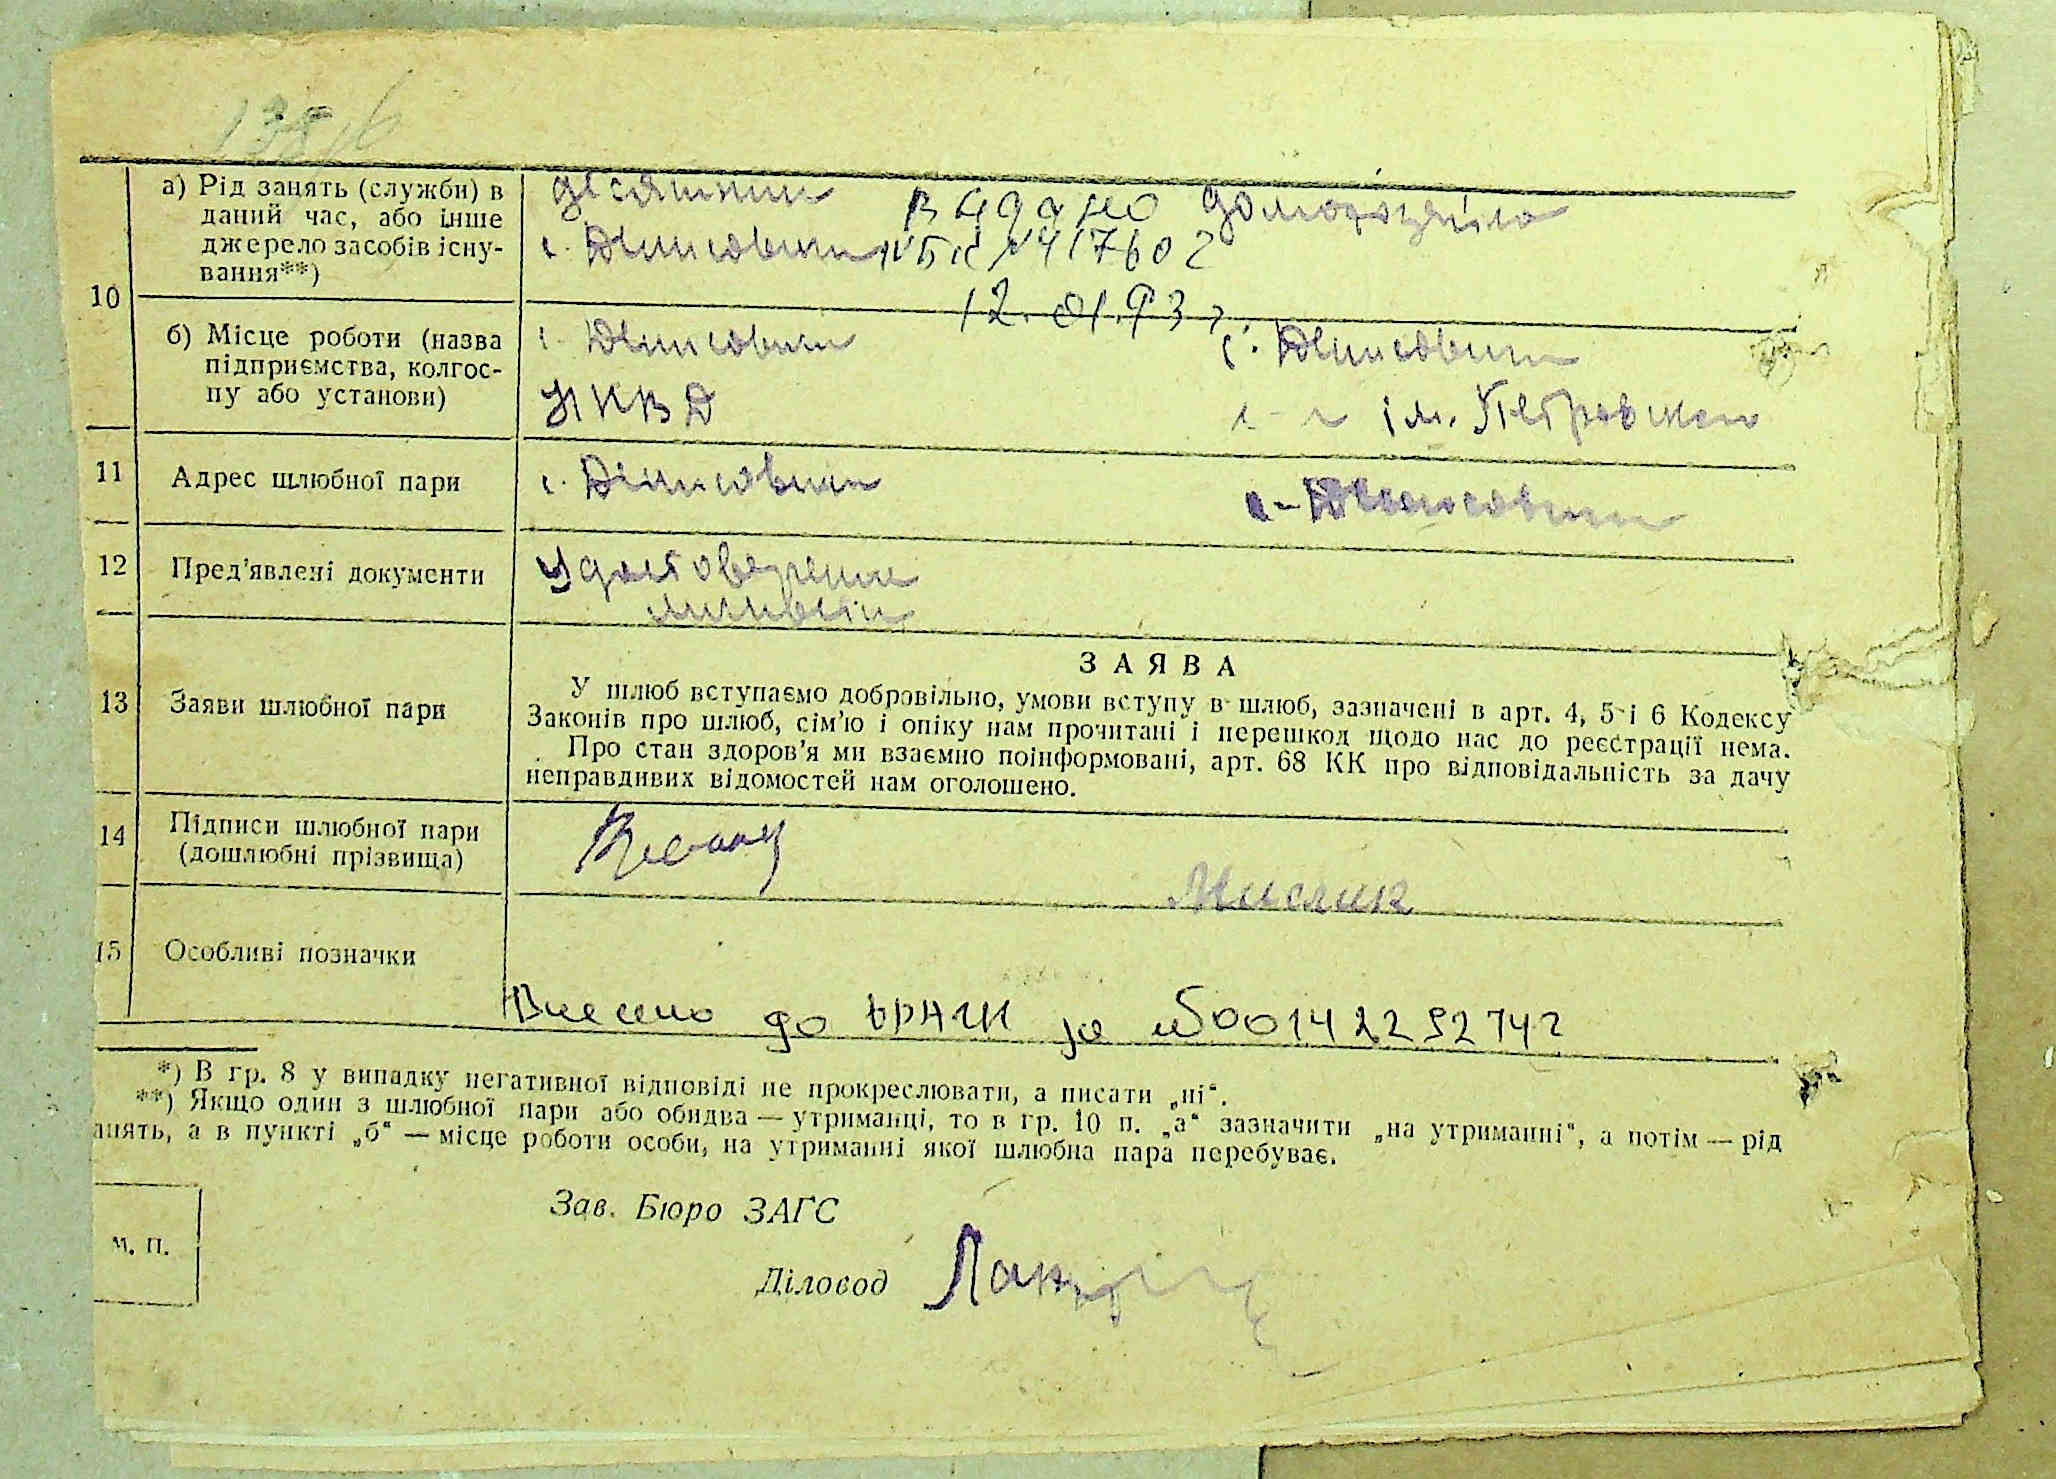 10
а) Рід занять (служби) в
даний час, або інше
джерело засобів існу-
вання**)
десятник
с. Денисовичи
видано
417602
12.01.93
домохозяйка
б) Місце роботи (назва
підприємства, колгос-
пу або установи)
с. Денисовичи
НКВД
с. Денисовичи
ім. Петровского
11
Адрес шлюбної пари
с. Денисовичи
с. Денисовичи
12
Пред'явлені документи
Удостоверение
личности
13
Заяви шлюбної пари
ЗАЯВА
У шлюб вступаємо добровільно, умови вступу в шлюб, зазначені в арт. 4, 5 і 6 Кодексу
Законів про шлюб, сім'ю і опіку нам прочитані і перешкод щодо нас до реєстрації нема.
Про стан здоров'я ми взаємно поінформовані, арт. 68 КК про відповідальність за дачу
неправдивих відомостей нам оголошено.
14
Підписи шлюбної пари
(дошлюбні прізвища)
Мислик
15
Особливі позначки
Внесено до ДРАЦС за №00142292742
*) В гр. 8 у випадку негативної відповіді не прокреслювати, а писати „ні“.
**) Якщо один з шлюбної пари або обидва — утриманці, то в гр. 10 п. „а“ зазначити „на утриманні“, а потім — рід
анять, а в пункті „б“ — місце роботи особи, на утриманні якої шлюбна пара перебуває.
Зав. Бюро ЗАГС
м. п.
Діловод